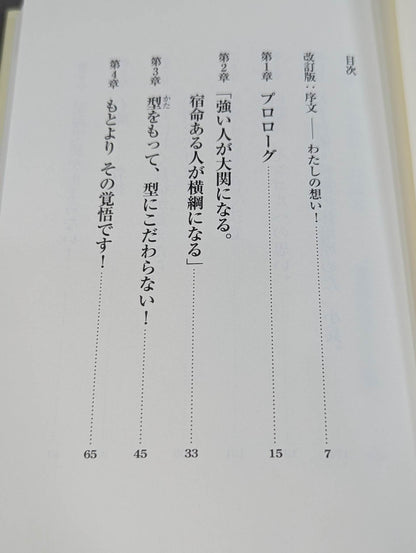 目次
改訂版:序文――わたしの想い！ 7
第1章 プロローグ 15
第2章 「強い人が大関になる。
宿命ある人が横綱になる」 33
第3章 型をもって、型にこだわらない！ 45
かた
第4章 もとより その覚悟です！ 65